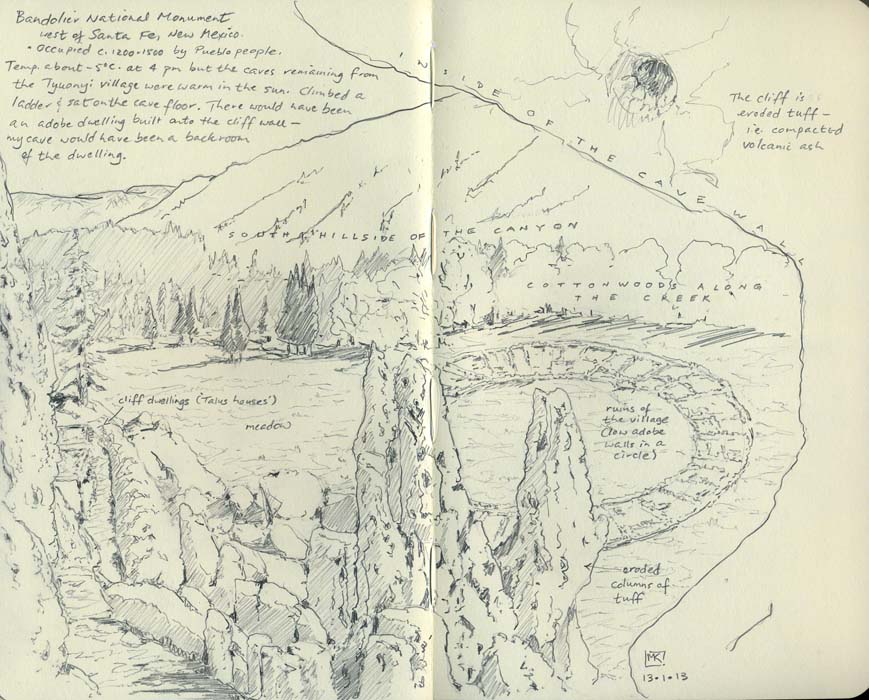 Bandolier National Monument
west of Santa Fe, New Mexico.
• Occupied c. 1200-1500 by Pueblo people.
Temp. about -5°C. at 4 pm but the caves remaining from
the Tyuonyi village were warm in the sun. Climbed a
ladder & sat on the cave floor. There would have been
an adobe dwelling built onto the cliff wall –
my cave would have been a backroom
of the dwelling.
INSIDE OF THE CAVE WALL
The cliff is
eroded tuff –
i.e. compacted
volcanic ash
SOUTH HILLSIDE OF THE CANYON
COTTONWOODS ALONG
THE CREEK
cliff dwellings ('Talus houses')
meadow
ruins of
the village
(low adobe
walls in a
circle)
eroded
columns of
tuff
MK
13·1·13